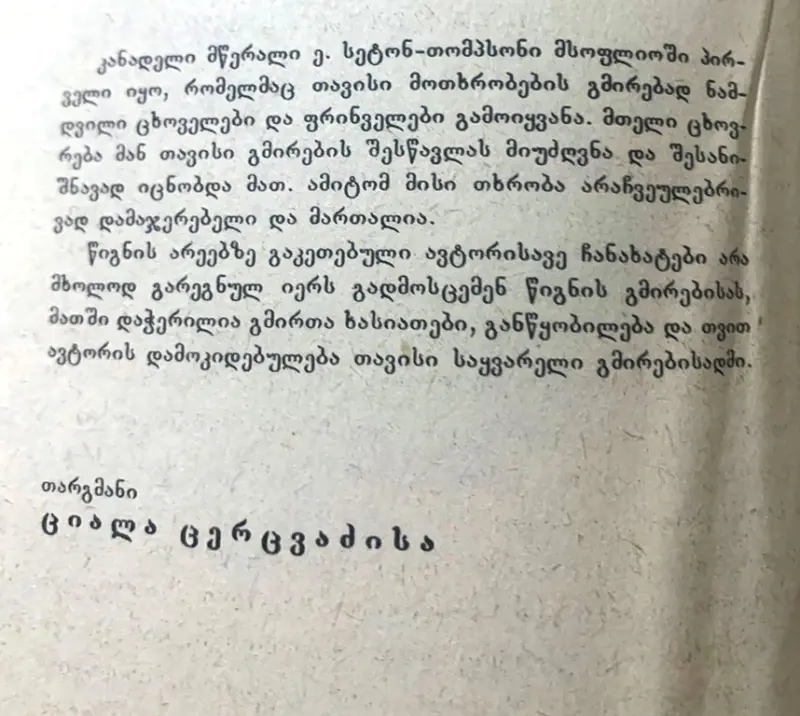 კანადელი მწერალი ე. სეტონ-თომპსონი მსოფლიოში პირ-
ველი იყო, რომელმაც თავისი მოთხრობების გმირებად ნამ-
დვილი ცხოველები და ფრინველები გამოიყვანა. მთელი ცხოვ-
რება მან თავისი გმირების შესწავლას მიუძღვნა და შესანი-
შნავად იცნობდა მათ. ამიტომ მისი თხრობა არაჩვეულებრი-
ვად დამაჯერებელი და მართალია.
წიგნის არეებზე გაკეთებული ავტორისავე ჩანახატები არა
მხოლოდ გარეგნულ იერს გადმოსცემენ წიგნის გმირებისას,
მათში დაჭერილია გმირთა ხასიათები, განწყობილება და თვით
ავტორის დამოკიდებულება თავისი საყვარელი გმირებისადმი.
თარგმანი
ციალა ცერცვაძისა